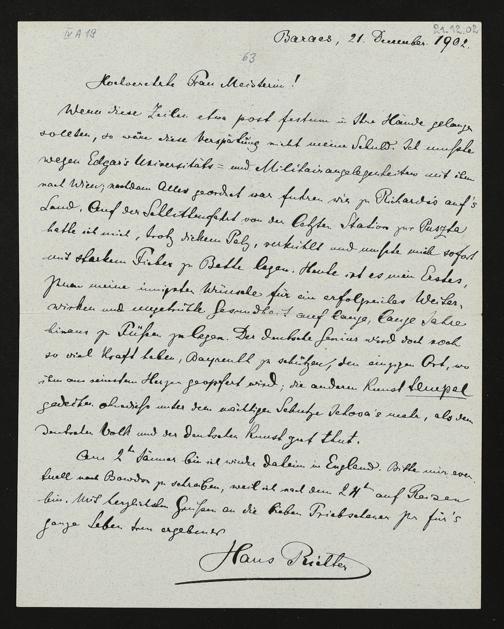 IV A 19
21.12.02
Baracs, 21. December 1902.
63
Hochverehrte Frau Meisterin!
Wenn diese Zeilen etwa post festum in Ihre Hände gelangen
sollten, so wäre diese Verspätung nicht meine Schuld. Ich mußte
wegen Edgar's Universitäts- und Militairangelegenheiten mit ihm
nach Wien; nachdem Alles geordnet war fuhren wir zu Richardis auf's
Land. Auf der Schlittenfahrt von der letzten Station zur Puszta
hatte ich mich, trotz dickem Pelz, verkühlt und mußte mich sofort
mit starkem Fieber zu Bette legen. Heute ist es mein Erstes,
Ihnen meine innigsten Wünsche für ein erfolgreiches Weiter-
wirken und ungetrübte Gesundheit auf lange, lange Jahre
hinaus zu Füßen zu legen. Der deutsche Genius wird doch noch
so viel Kraft haben, Bayreuth zu schützen, den einzigen Ort, wo
ihm aus reinstem Herzen geopfert wird; die anderen Kunst
gedeihen ohnedieß unter dem mächtigen Schutze Jehova's mehr, als dem
deutschen Volk und der deutschen Kunst gut thut.
Am 2ten Jänner bin ich wieder daheim in England. Bitte mir even-
tuell nach Bowdon zu schreiben, weil ich nach dem 24ten auf Reisen
bin. Mit herzlichsten Grüßen an die lieben Triebschener Ihr für's
ganze Leben treu ergebener
Hans Richter